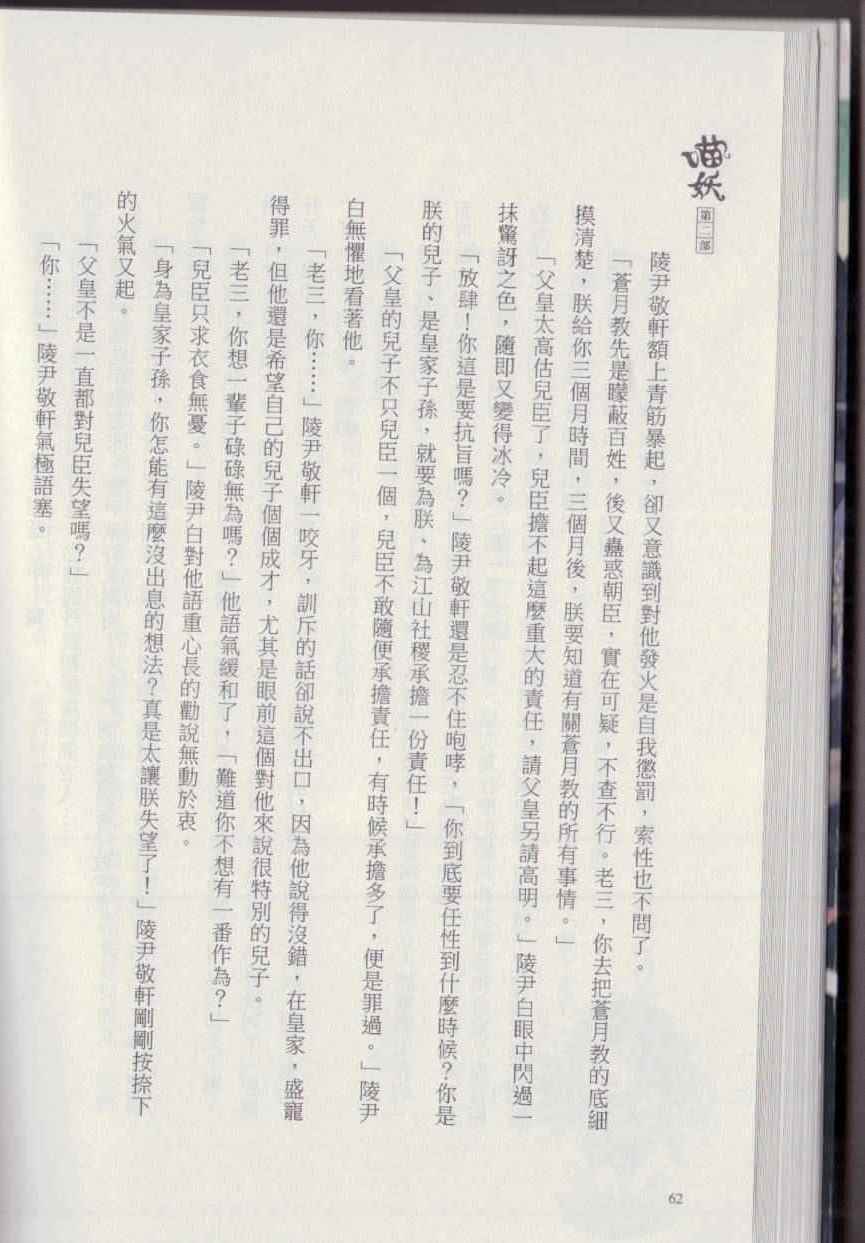 喵妖
第二部
陵尹敬軒額上青筋暴起，卻又意識到對他發火是自我懲罰，索性也不問了。
「蒼月教先是矇蔽百姓，後又蠱惑朝臣，實在可疑，不查不行。老三，你去把蒼月教的底細
摸清楚，朕給你三個月時間，三個月後，朕要知道有關蒼月教的所有事情。」
「父皇太高估兒臣了，兒臣擔不起這麼重大的責任，請父皇另請高明。」陵尹白眼中閃過一
抹驚訝之色，隨即又變得冰冷。
「放肆！你這是要抗旨嗎？」陵尹敬軒還是忍不住咆哮，「你到底要任性到什麼時候？你是
朕的兒子、是皇家子孫，就要為朕、為江山社稷承擔一份責任！」
「父皇的兒子不只兒臣一個，兒臣不敢隨便承擔責任，有時候承擔多了，便是罪過。」陵尹
白無懼地看著他。
「老三，你……」陵尹敬軒一咬牙，訓斥的話卻說不出口，因為他說得沒錯，在皇家，盛寵
得罪，但他還是希望自己的兒子個個成才，尤其是眼前這個對他來說很特別的兒子。
「老三，你想一輩子碌碌無為嗎？」他語氣緩和了，「難道你不想有一番作為？」
「兒臣只求衣食無憂。」陵尹白對他語重心長的勸說無動於衷。
「身為皇家子孫，你怎能有這麼沒出息的想法？真是太讓朕失望了！」陵尹敬軒剛剛按捺下
的火氣又起。
「父皇不是一直都對兒臣失望嗎？」
「你……」陵尹敬軒氣極語塞。
62